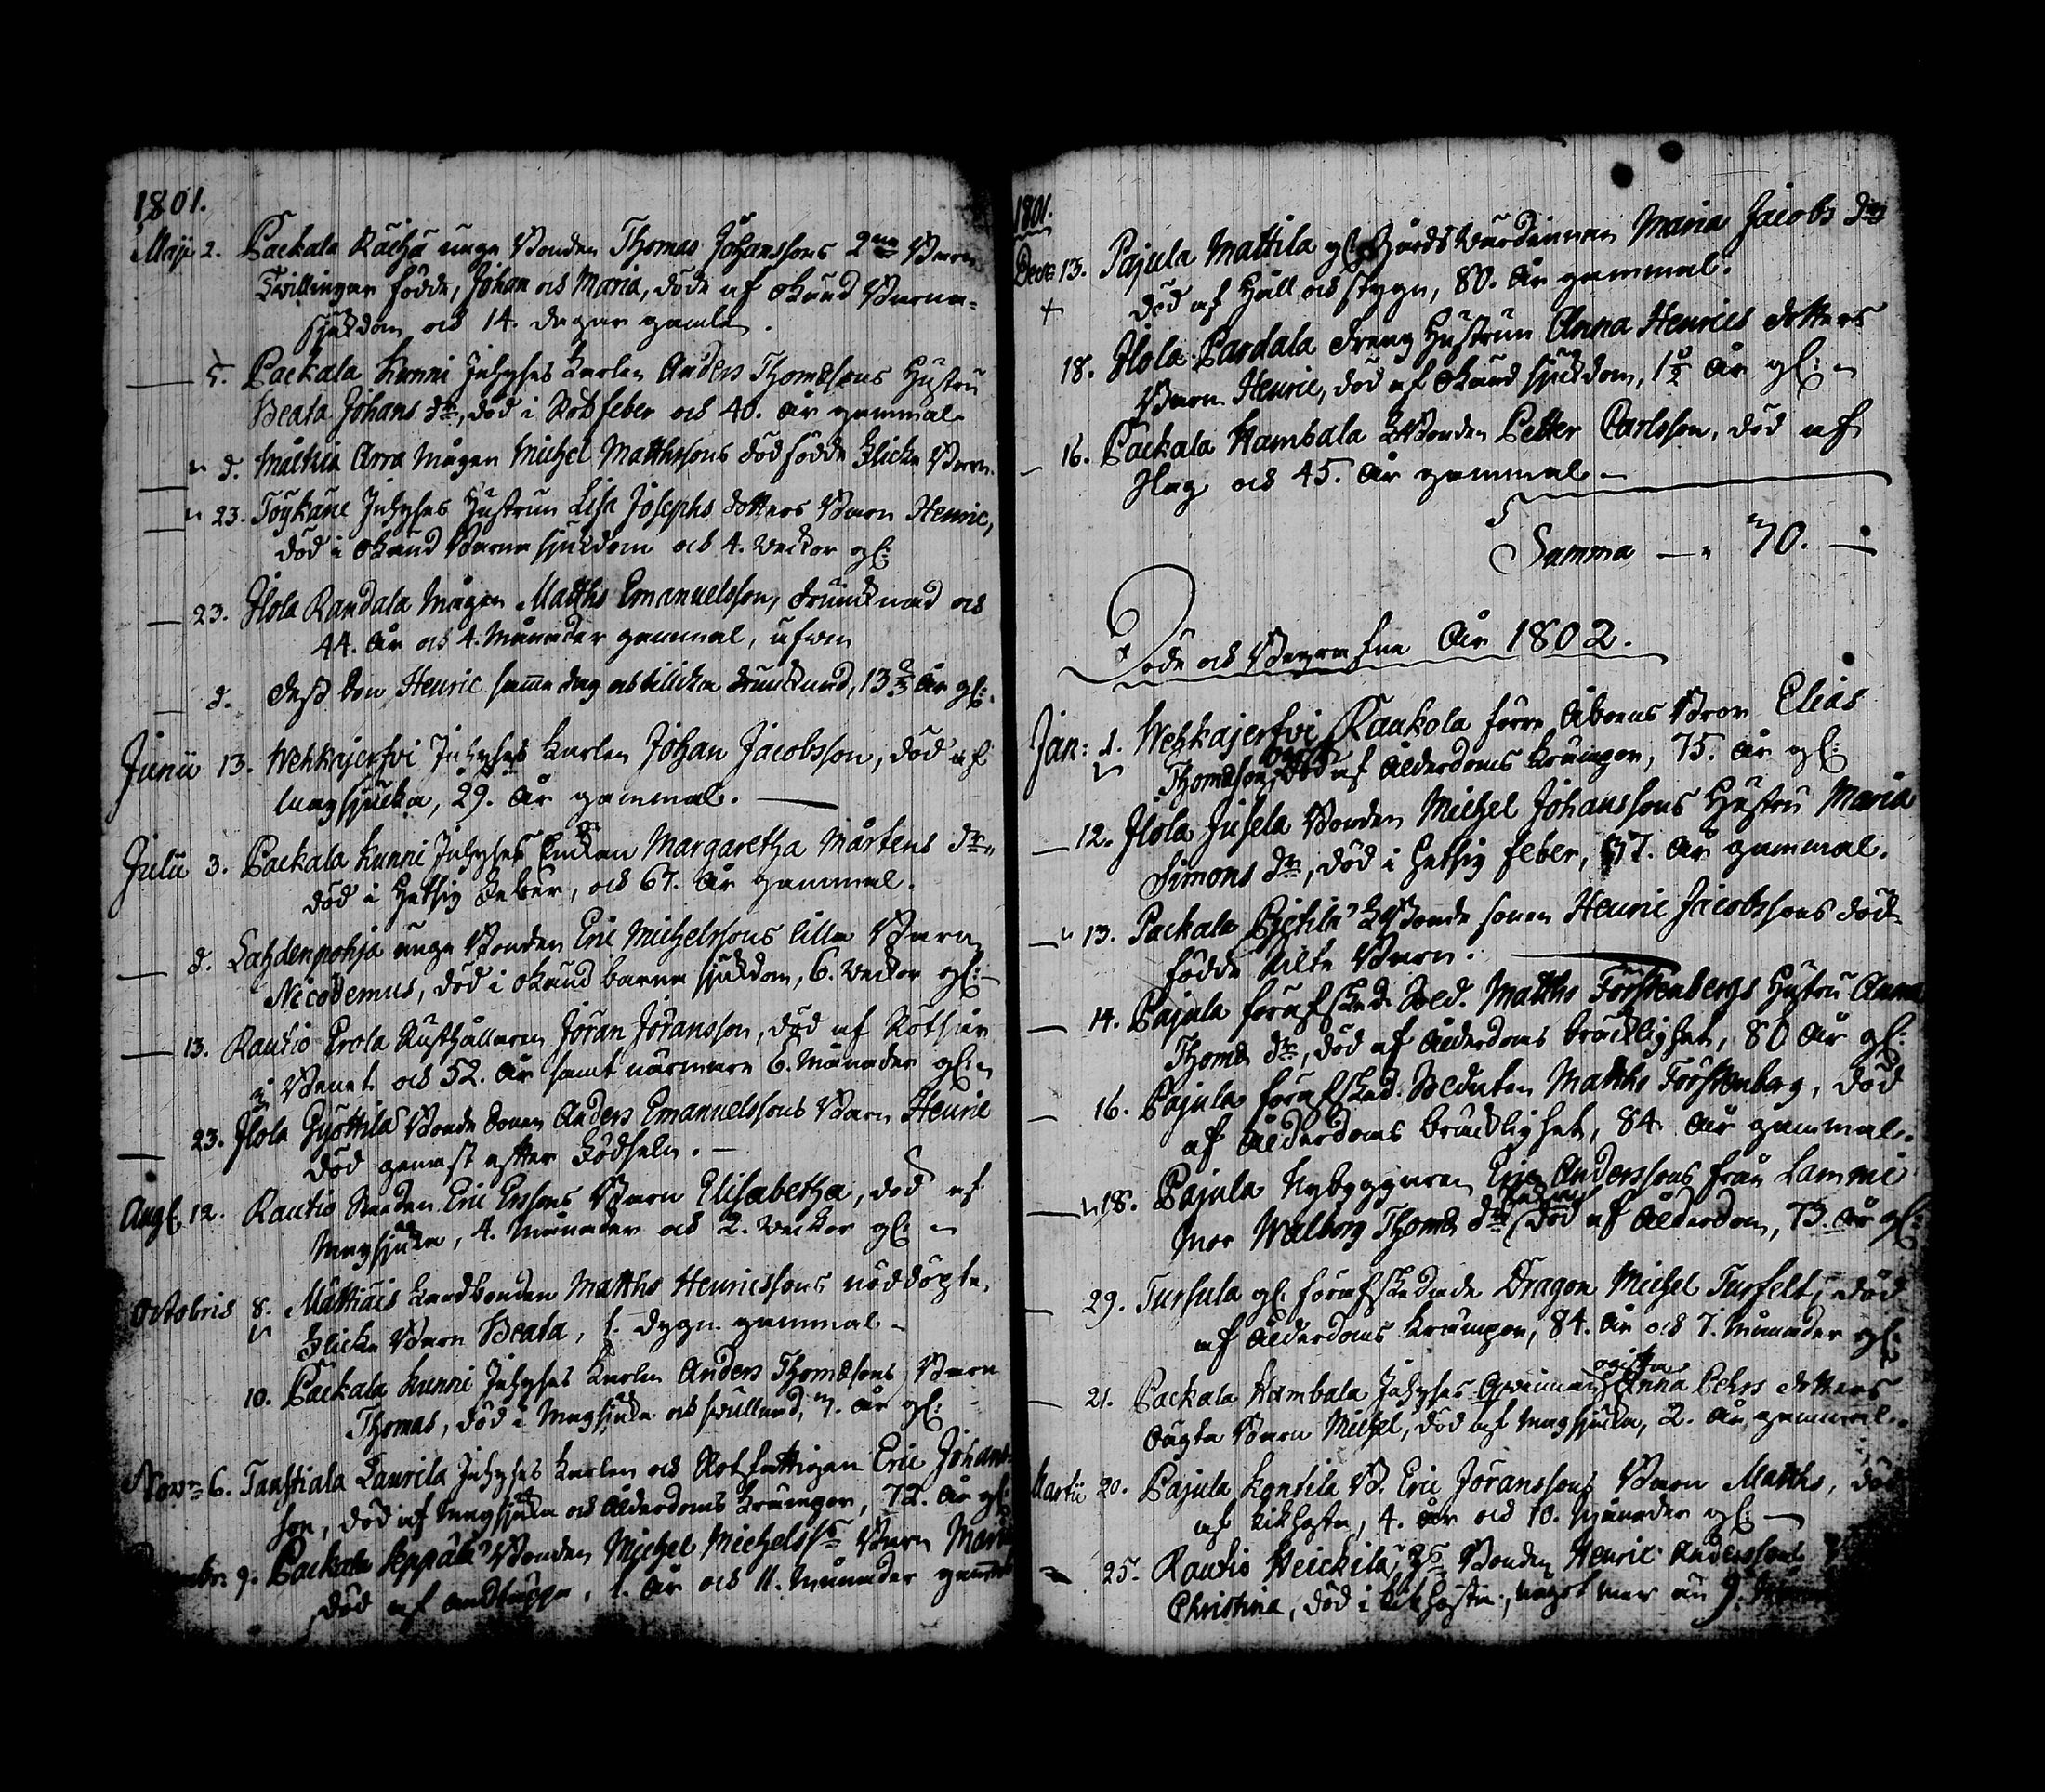 1801.
Maji 2. Packala Rächä unge Bonden Thomas Johanssons 2ne Barn
Twillingar födde, Johan och Maria, döde af okänd Barna-
sjukdom och 14. dagar gamle.
5. Packala Kunni Inhyses Karlen Anders Thomæsons Hustru
Beata Johans dr, död i Rötfeber och 40. år gammal
d. Mattila Arra Mågen Michel Matthssons dödfödde Flicke Barn.
23. Töykäne Inhyses Hustrun Lisa Josephs dotters Barn Henric,
död i okänd Barnasjukdom och 4. veckor gl:
23. Ilola Randala Mågen Matths Emanuelsson, drunknad och
44. år och 4. Månader gammal, äfven
d. dess Son Henric samma dag och tillika drunknad, 13 2/3 år gl:
Junii 13. Wehkajerfvi Inhyses Karlen Johan Jacobsson, död af
magsjuka, 29. år gammal.
Julii 3. Packala Kunni Inhyses Enkan Margaretha Mårtens dr
död i Hetsig Feber, och 67. år gammal.
d. Lahdenpohja unge Bonden Eric Michelssons lilla Barn
Nicodemus, död i okänd barna sjukdom, 6. veckor gl:
13. Rautio Prola Rusthållaren Jöran Jöransson, död af Rötsår
i Benet och 52. år samt närmare 6. Månader gl:
23. Ilola Pyöttilä Bonde Sonen Anders Emanuelssons Barn Henric
död genast efter Födseln.
Augs. 12. Rautio Smeden Eric Erssons Barn Elisabetha, död af
Magsjuka, 4. Månader och 2. veckor gl:
Octobris 8. Mattiais Landbonden Matths Henricssons nöddöpte
Flicke Barn Beata, 1. dygn gammal
10. Packala Kunni Inhyses Karlen Anders Thomæsons Barn
Thomas, död i Magsjuka och svullnad, 7. år gl:
Novr 6. Tanttiala Laurila Inhyses Karlen och Rotfattigen Eric Johans-
son, död af Magsjuka och ålderdoms krämpor, 72. år gl:
9. Packala Seppälä Bonden Michel Michelss. Barn Maria
död af andtäppa, 1. år och 11. Månader gammal
1801.
Decr 13. Pajula Mattila gl. Gårds Värdinnan Maria Jacobs dr
död af Håll och stygn, 80. år gammal.
18. Ilola Pardala dreng Hustrun Anna Henrics dotters
Barn Henric, död af okänd sjukdom, 1 1/2 år gl:
16. Packala Hambala Bonden Petter Carlsson, död af
Slag och 45. år gammal
Summa 70.
Döde och Begrafne År 1802.
Jan: 1. Wehkajerfvi Kaukola förre Åboens Bror Elias
Thomæson, död af ålderdoms krämpor, 75. år gl:
12. Ilola Jusela Bonden Michel Johanssons Hustru Maria
Simons dr, död i hetsig feber, 37. år gammal.
13. Packala Pietilä Bonde sonen Henric Jacobssons död-
födde Pilte Barn.
14. Pajula förafsked. Sold. Matths Förstenbergs Hustru Anna
Thomæ dr, död af ålderdoms bräcklighet, 80 år gl:
16. Pajula förafsked. Soldaten Matths Förstenberg, död
af ålderdoms bräcklighet, 84. år gammal.
18. Pajula Nybyggaren Eric Anderssons från Lammi
Mor Walborg Thomæ dr död af ålderdom, 73. år gl:
29. Tursula gl. förafskedade Dragon Michel Turfelt, död
af ålderdoms krämpor, 84. år och 7. Månader gl:
21. Packala Hambala Inhyses Qvinnans ogifta Anna Pehrs dotters
oägta Barn Michel, död af magsjuka, 2. år gammal.
Martii 20. Pajula Kontila B. Eric Jöranssons Barn Matths, död
af kikhosta, 4. år och 10. Månader gl:
25. Rautio Heickilä Bonden Henric Anderssons
Christina, död i kikhosta, något mer än 9.